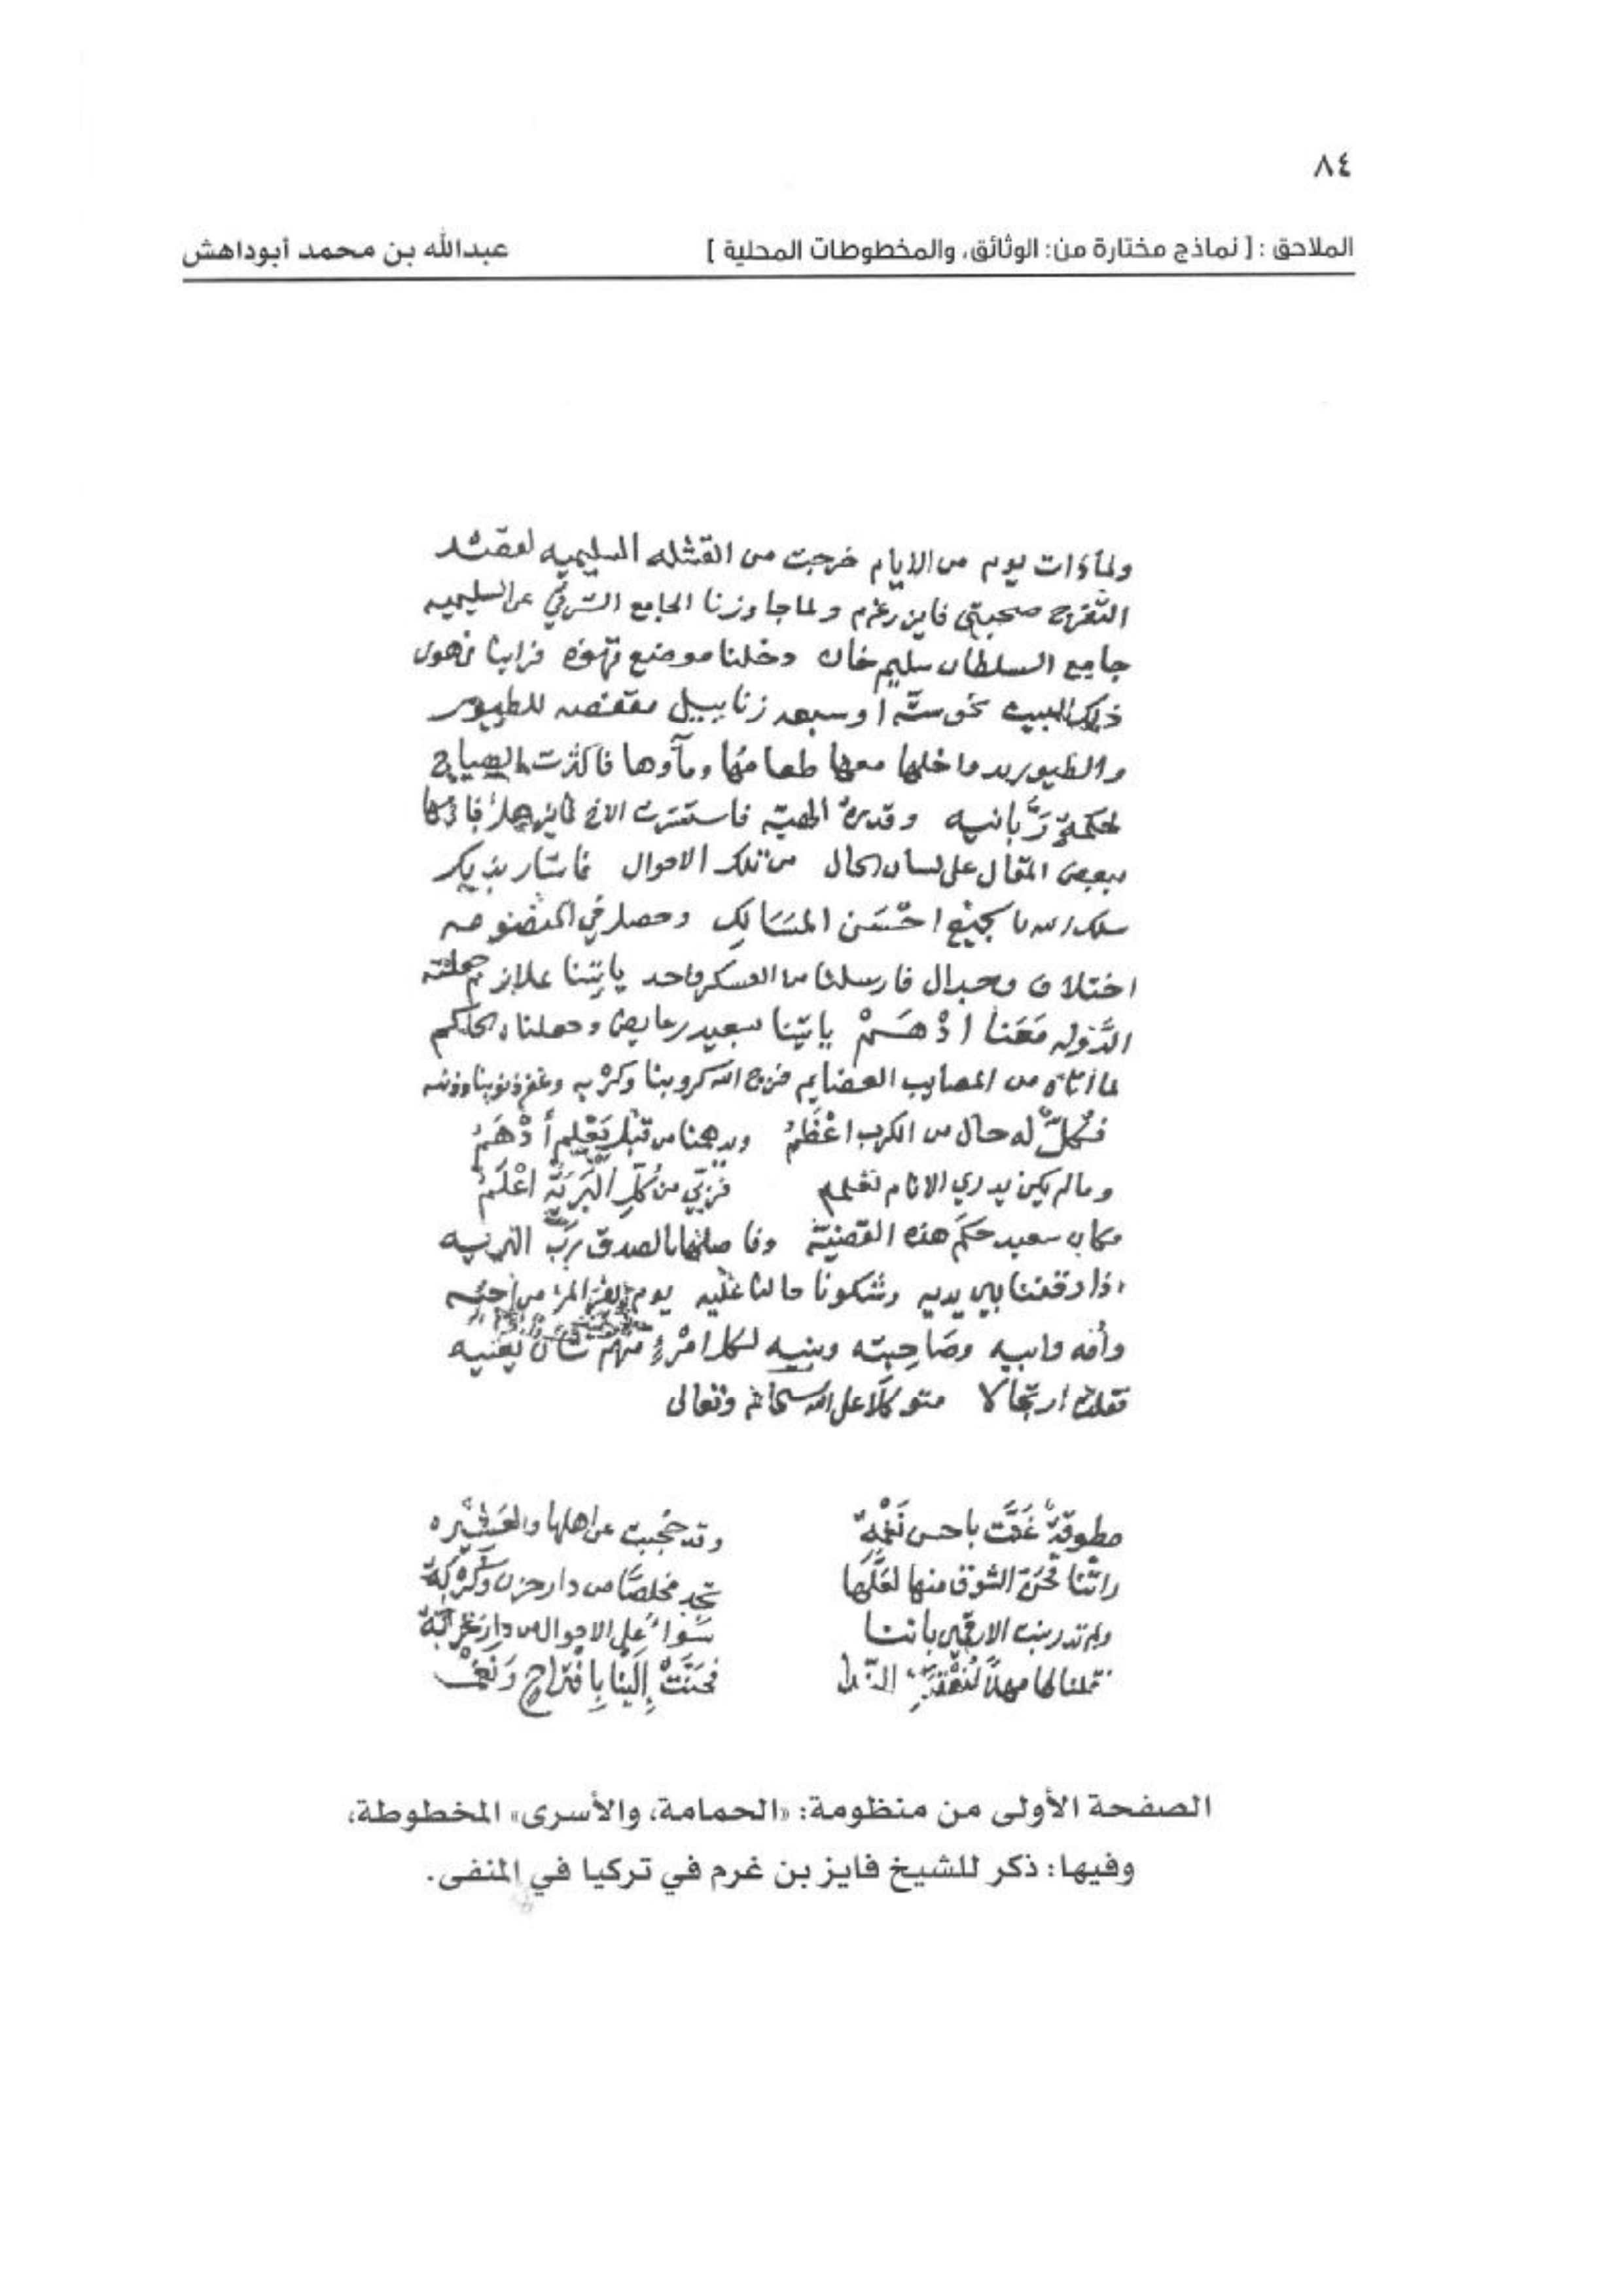 ٨٤
الملاحق : [ نماذج مختارة من: الوثائق، والمخطوطات المحلية ]
عبدالله بن محمد أبوداهش
ولما ذات يوم من الايام خرجت من القشله السليميه لقصد
التفرج صحبتي فايز بن غرم ولما جاوزنا الجامع الشرقي عن السليميه
جامع السلطان سليم خان دخلنا موضع قهوه فراينا في هول
ذلك البيت نحو سته او سبعه زنابيل مقفصه للطيور
والطيور بداخلها معها طعامها ومآوها فاكثرت بالصياح
لحكمة ربانيه وقدرة الهية فاستقرت الاخ فايز هل
ببعض المقال على لسان الحال من تلك الاحوال فاشار بذلك
سلك الله بالجميع احسن المسالك وحصل في
اختلاف وجدال فارسلنا من العسكر واحد ياتينا
الدوله معنا ادهم ياتينا سعيد بن عايض وجعلناه الحاكم
لما اتاه من المصايب العضايم فرج الله كروبنا وكربه وغفر ذنوبنا وذنبه
فكل له حال من الكرب اعظم من قبل يعلم أدهم
وما لم يكن يدري الانام بعلمه فربي من كل البرية اعلم
فكان سعيد حكم هذه القضية وفاصلها بالصدق رب البريه
اذا وقفنا بين يديه وشكونا حالنا عليه يوم يفر المرء من اخيه
وأمه وابيه وصاحبته وبنيه لكل امرءٍ منهم شأن يغنيه
فقلت ارتجالا متوكلا على الله سبحانه وتعالى
مطوقة غنت باحسن نغمة وقد حجبت عن اهلها والعشيره
راتنا فحن الشوق منها لعلها تجد مخلصًا من دار حزن وكربة
ولم تدر بنت الارقمين باننا سواءٌ على الاحوال من دار غربة
فقلنا لها مهلاً فحنت إلينا بافتراح
الصفحة الأولى من منظومة: «الحمامة، والأسرى» المخطوطة،
وفيها: ذكر للشيخ فايز بن غرم في تركيا في المنفى.